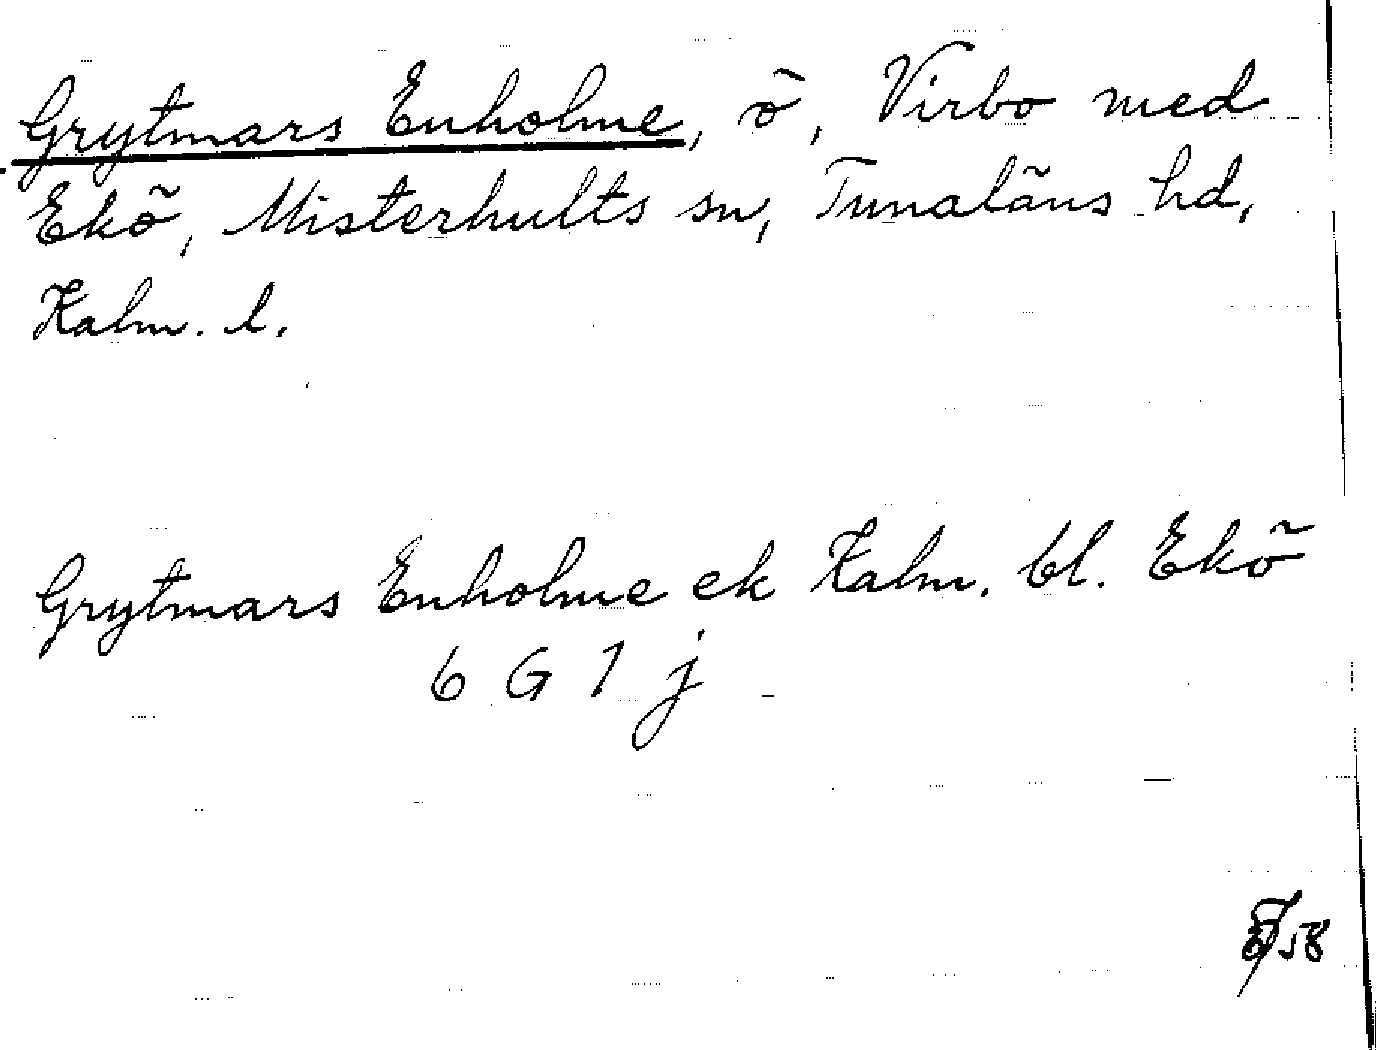 Grytmars Enholme, ö, Virbo med
Ekö, Misterhults sn, Tunaläns hd,
Kalm. l.
Grytmars Enholme ek Kalm. bl. Ekö
6 G 1 j
58